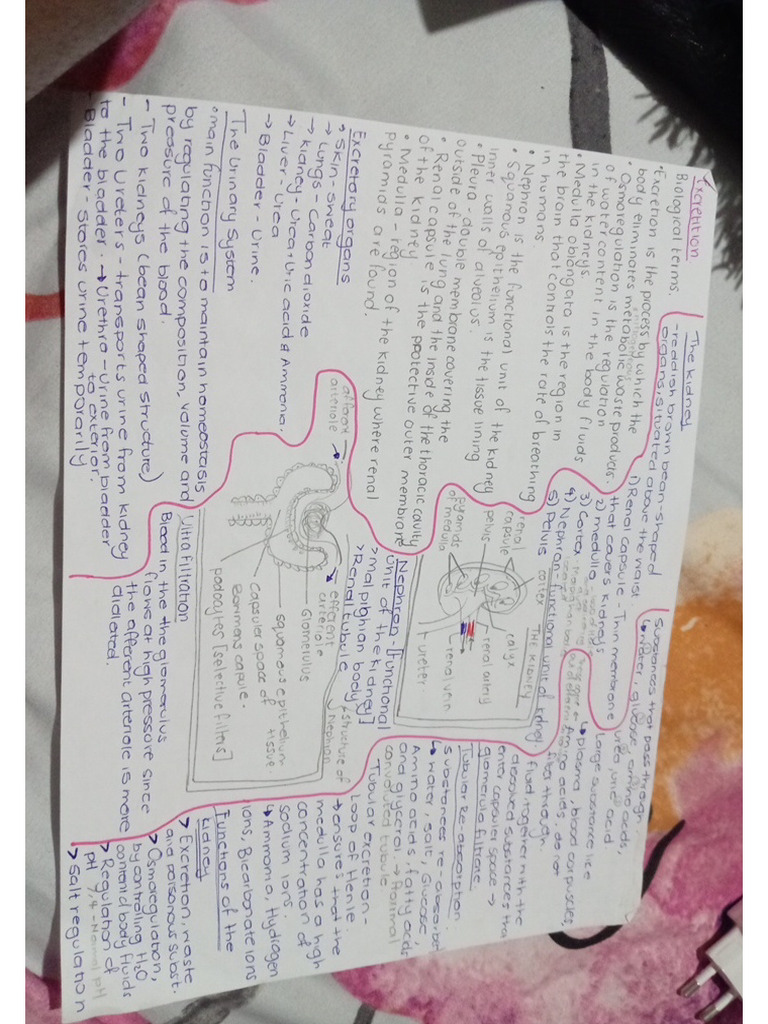 Excretition
Biological terms.
• Excretion is the process by which the
body eliminates metabolic waste producrs.
• Osmoregulation is the regulation
of water content in the body fluids
in the kidneys.
• Medulla oblangata is the region in
the brain that controls the rate of breathing
in humans
• Nephron is the functional unit of the kidney
• Squamous epithelium is the tissue lining
inner walls of alveolus.
• Pleura - double membrane covering the
outside of the lung and the inside of the thoracic cavity
• Renal capsule is the protective outer membrane
of the kidney
• Medulla - region of the kidney where renal
pyramids are found
Excretory organs
• Skin - sweat
→ Lungs - Carbon dioxide
→ kidney - Urea + Uric acid & Ammonia.
→ Liver - Urea
> Bladder - Urine.
The Urinary System
• main function is to maintain homeostasis
by regulating the composition, volume and
pressure of the blood.
- Two kidneys (bean shaped structure)
- Two Ureters - transports urine from kidney
to the bladder. → Urethra - Urine from bladder
to exterior.
- Bladder - Stores urine temporarily
The kidney
- reddish brown bean-shaped
organs, situated above the waist
1) Renal capsule - Thin membrane
that covers kidneys
2) medulla
3) Cortex
4) Nephron - functional unit of kidney.
5) Pelvis
THE KIDNEY
cortex
renal
capsule
pelvis
pyramids
of medulla
calyx
renal artery
renal vein
ureter
Nephron [functional
Unit of the kidney]
> malpighian body
> Renal tubule
structure of
Nephron
arteriole
efferent
arteriole
Glomerulus
squamous epithelium
tissue.
capsular space of
Bowmans capule.
podocytes [selective filters]
Ultrafiltration
Blood in the the glomarulus
flows at high pressure since
the afferent arteriole is more
dialated.
Substances that pass through
↳ Water, glucose, amino acids,
urea, uric acid
Large substance like
↳ plasma, blood corpuscles,
Amino acids, do not
filta through.
fluid together with the
dissolved substances tha
enter capsular space →
glomerula filtrate.
Tubular Re-absorption
Substances re-absorbed
↳ water, salt, Glucose,
Amino acids, fatty acids
and glycerol. → Proximal
convoluted tubule
Tubular excretion -
Loop of Henle.
→ ensures that the
medulla has a high
concentration of
sodium ions.
↳ Ammonia, Hydrogen
ions, Bicarbonate ions
Functions of the
kidney
> Excretion, waste
and poisonous subst.
> Osmoregulation,
by controlling H2O
content of body fluids
> Regulation of
pH 7,4 - Normal pH
> Salt regulation